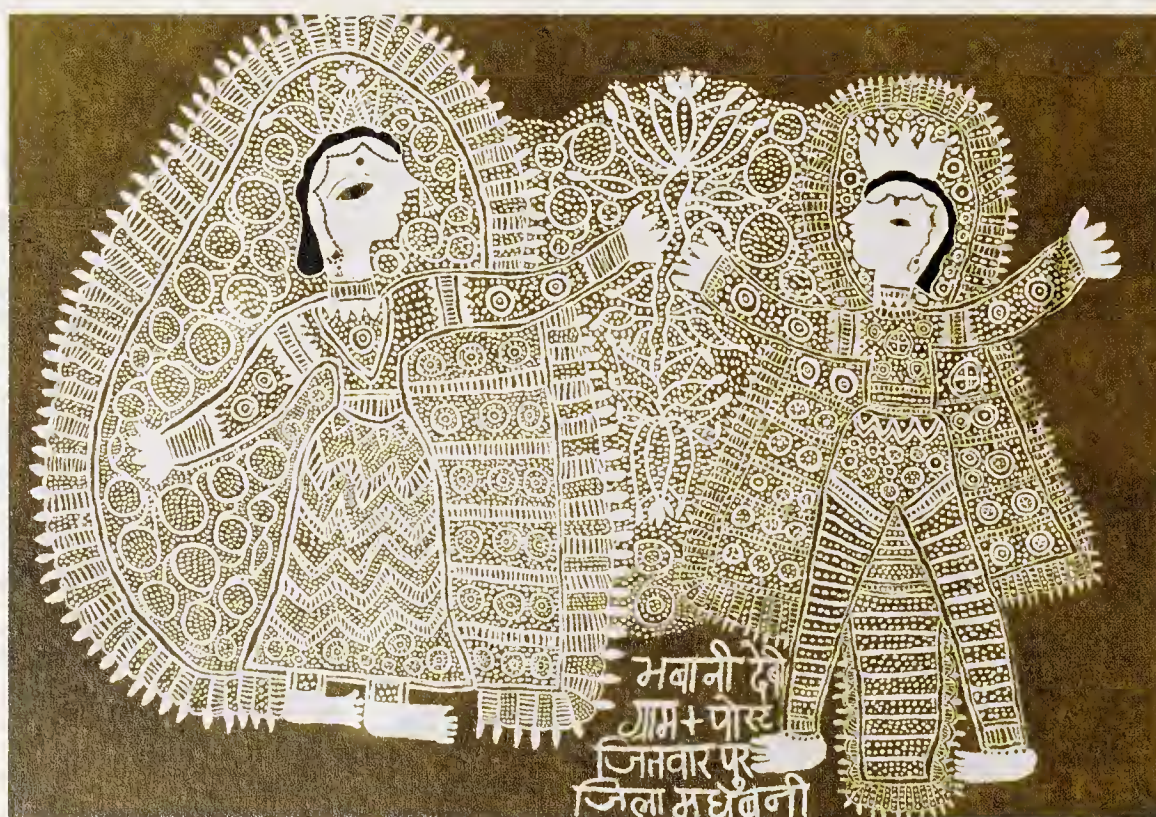 भवानी देवी
ग्राम + पोस्ट
जितवार पुर
जिला मधुबनी